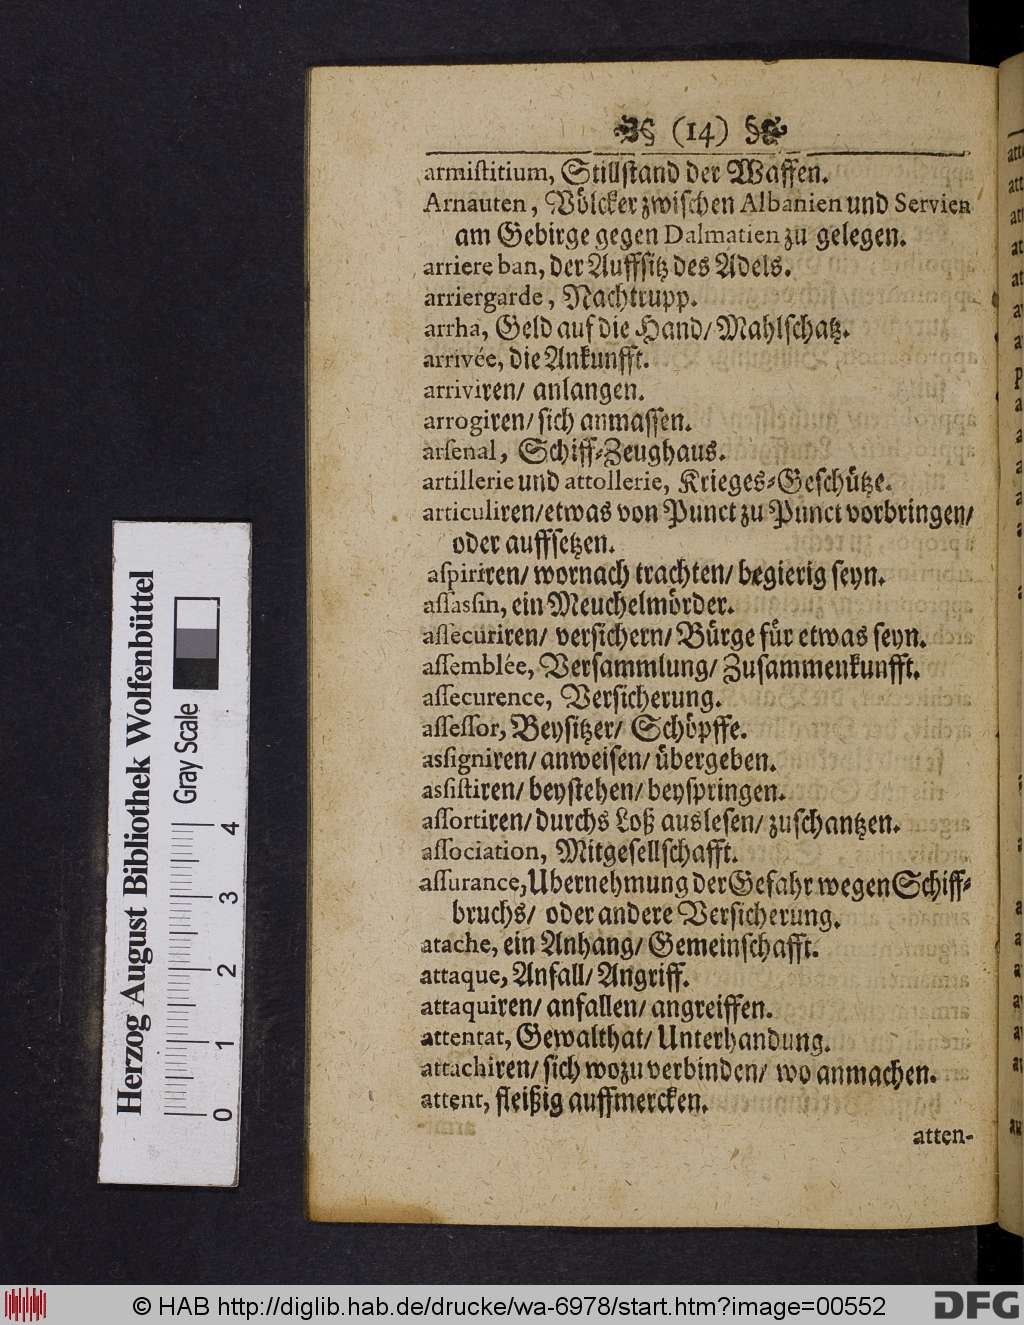 § (14) §
armistitium, Stillstand der Waffen.
Arnauten, Völcker zwischen Albanien und Servien
am Gebirge gegen Dalmatien zu gelegen.
arriere ban, der Auffsitz des Adels.
arriergarde, Nachtrupp.
arrha, Geld auf die Hand/ Mahlschatz.
arrivée, die Ankunfft.
arriviren/ anlangen.
arrogiren/ sich anmassen.
arsenal, Schiff-Zeughaus.
artillerie und attollerie, Krieges-Geschütze.
articuliren/ etwas von Punct zu Punct vorbringen/
oder auffsetzen.
aspiriren/ wornach trachten/ begierig seyn.
assassin, ein Meuchelmörder.
assecuriren/ versichern/ Bürge für etwas seyn.
assemblée, Versammlung/ Zusammenkunfft.
assecurence, Versicherung.
assessor, Beysitzer/ Schöpffe.
assigniren/ anweisen/ übergeben.
assistiren/ beystehen/ beyspringen.
assortiren/ durchs Loß auslesen/ zuschantzen.
association, Mitgesellschafft.
assurance, Ubernehmung der Gefahr wegen Schiff-
bruchs/ oder andere Versicherung.
atache, ein Anhang/ Gemeinschafft.
attaque, Anfall/ Angriff.
attaquiren/ anfallen/ angreiffen.
attentat, Gewalthat/ Unterhandung.
attachiren/ sich wozu verbinden/ wo anmachen.
attent, fleißig auffmercken.
atten-
Herzog August Bibliothek Wolfenbüttel
Gray Scale
0 1 2 3 4
© HAB http://diglib.hab.de/drucke/wa-6978/start.htm?image=00552
DFG